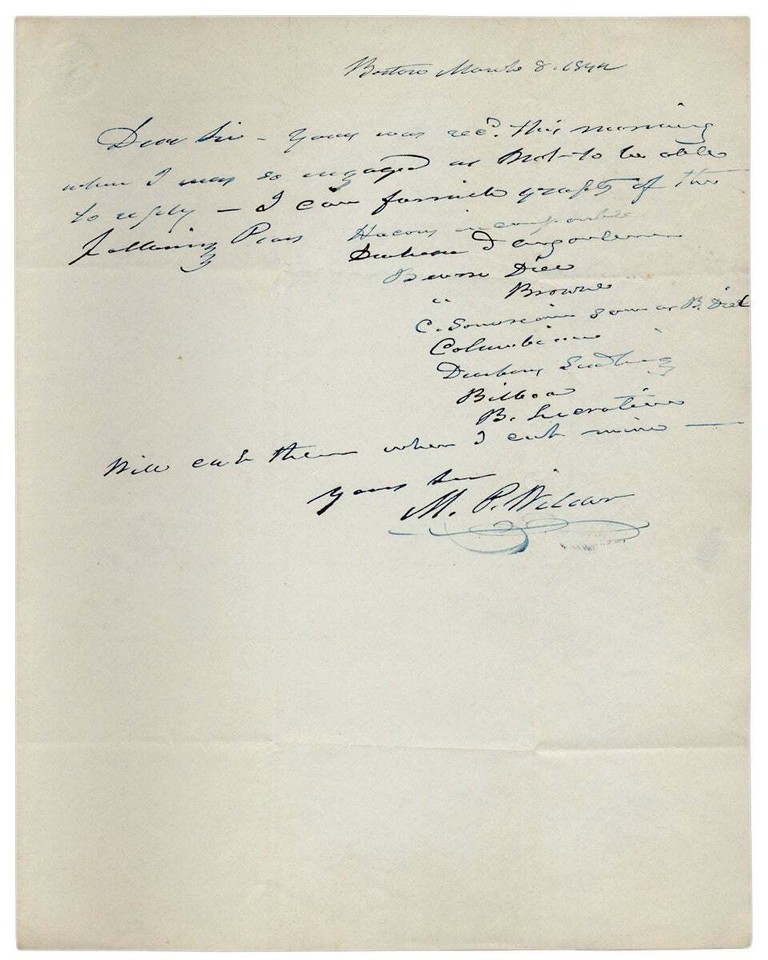 Boston March 8. 184
Dear Sir – Yours was rec'd. this morning
when I was so engaged as not to be able
to reply – I can furnish grafts of the
following Pears Hacons incomparable
Duchesse D'angouleme
Beurre Diel
" Brown
C. Souveraine same as B. Diel
Columbian
Dunbury Seedling
Bilboa
B. Lucrative
Will cut them when I cut mine –
Yours
M. P. Wilder